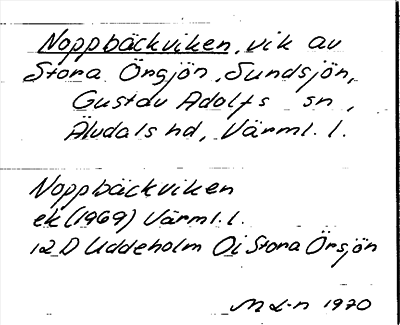 Noppbäckviken, vik av
Stora Örsjön, Sundsjön,
Gustav Adolfs sn,
Älvdals hd, Värml. l.
Noppbäckviken
ek (1969) Värml. l.
12 D Uddeholm Oi Stora Örsjön
M L-n 1970